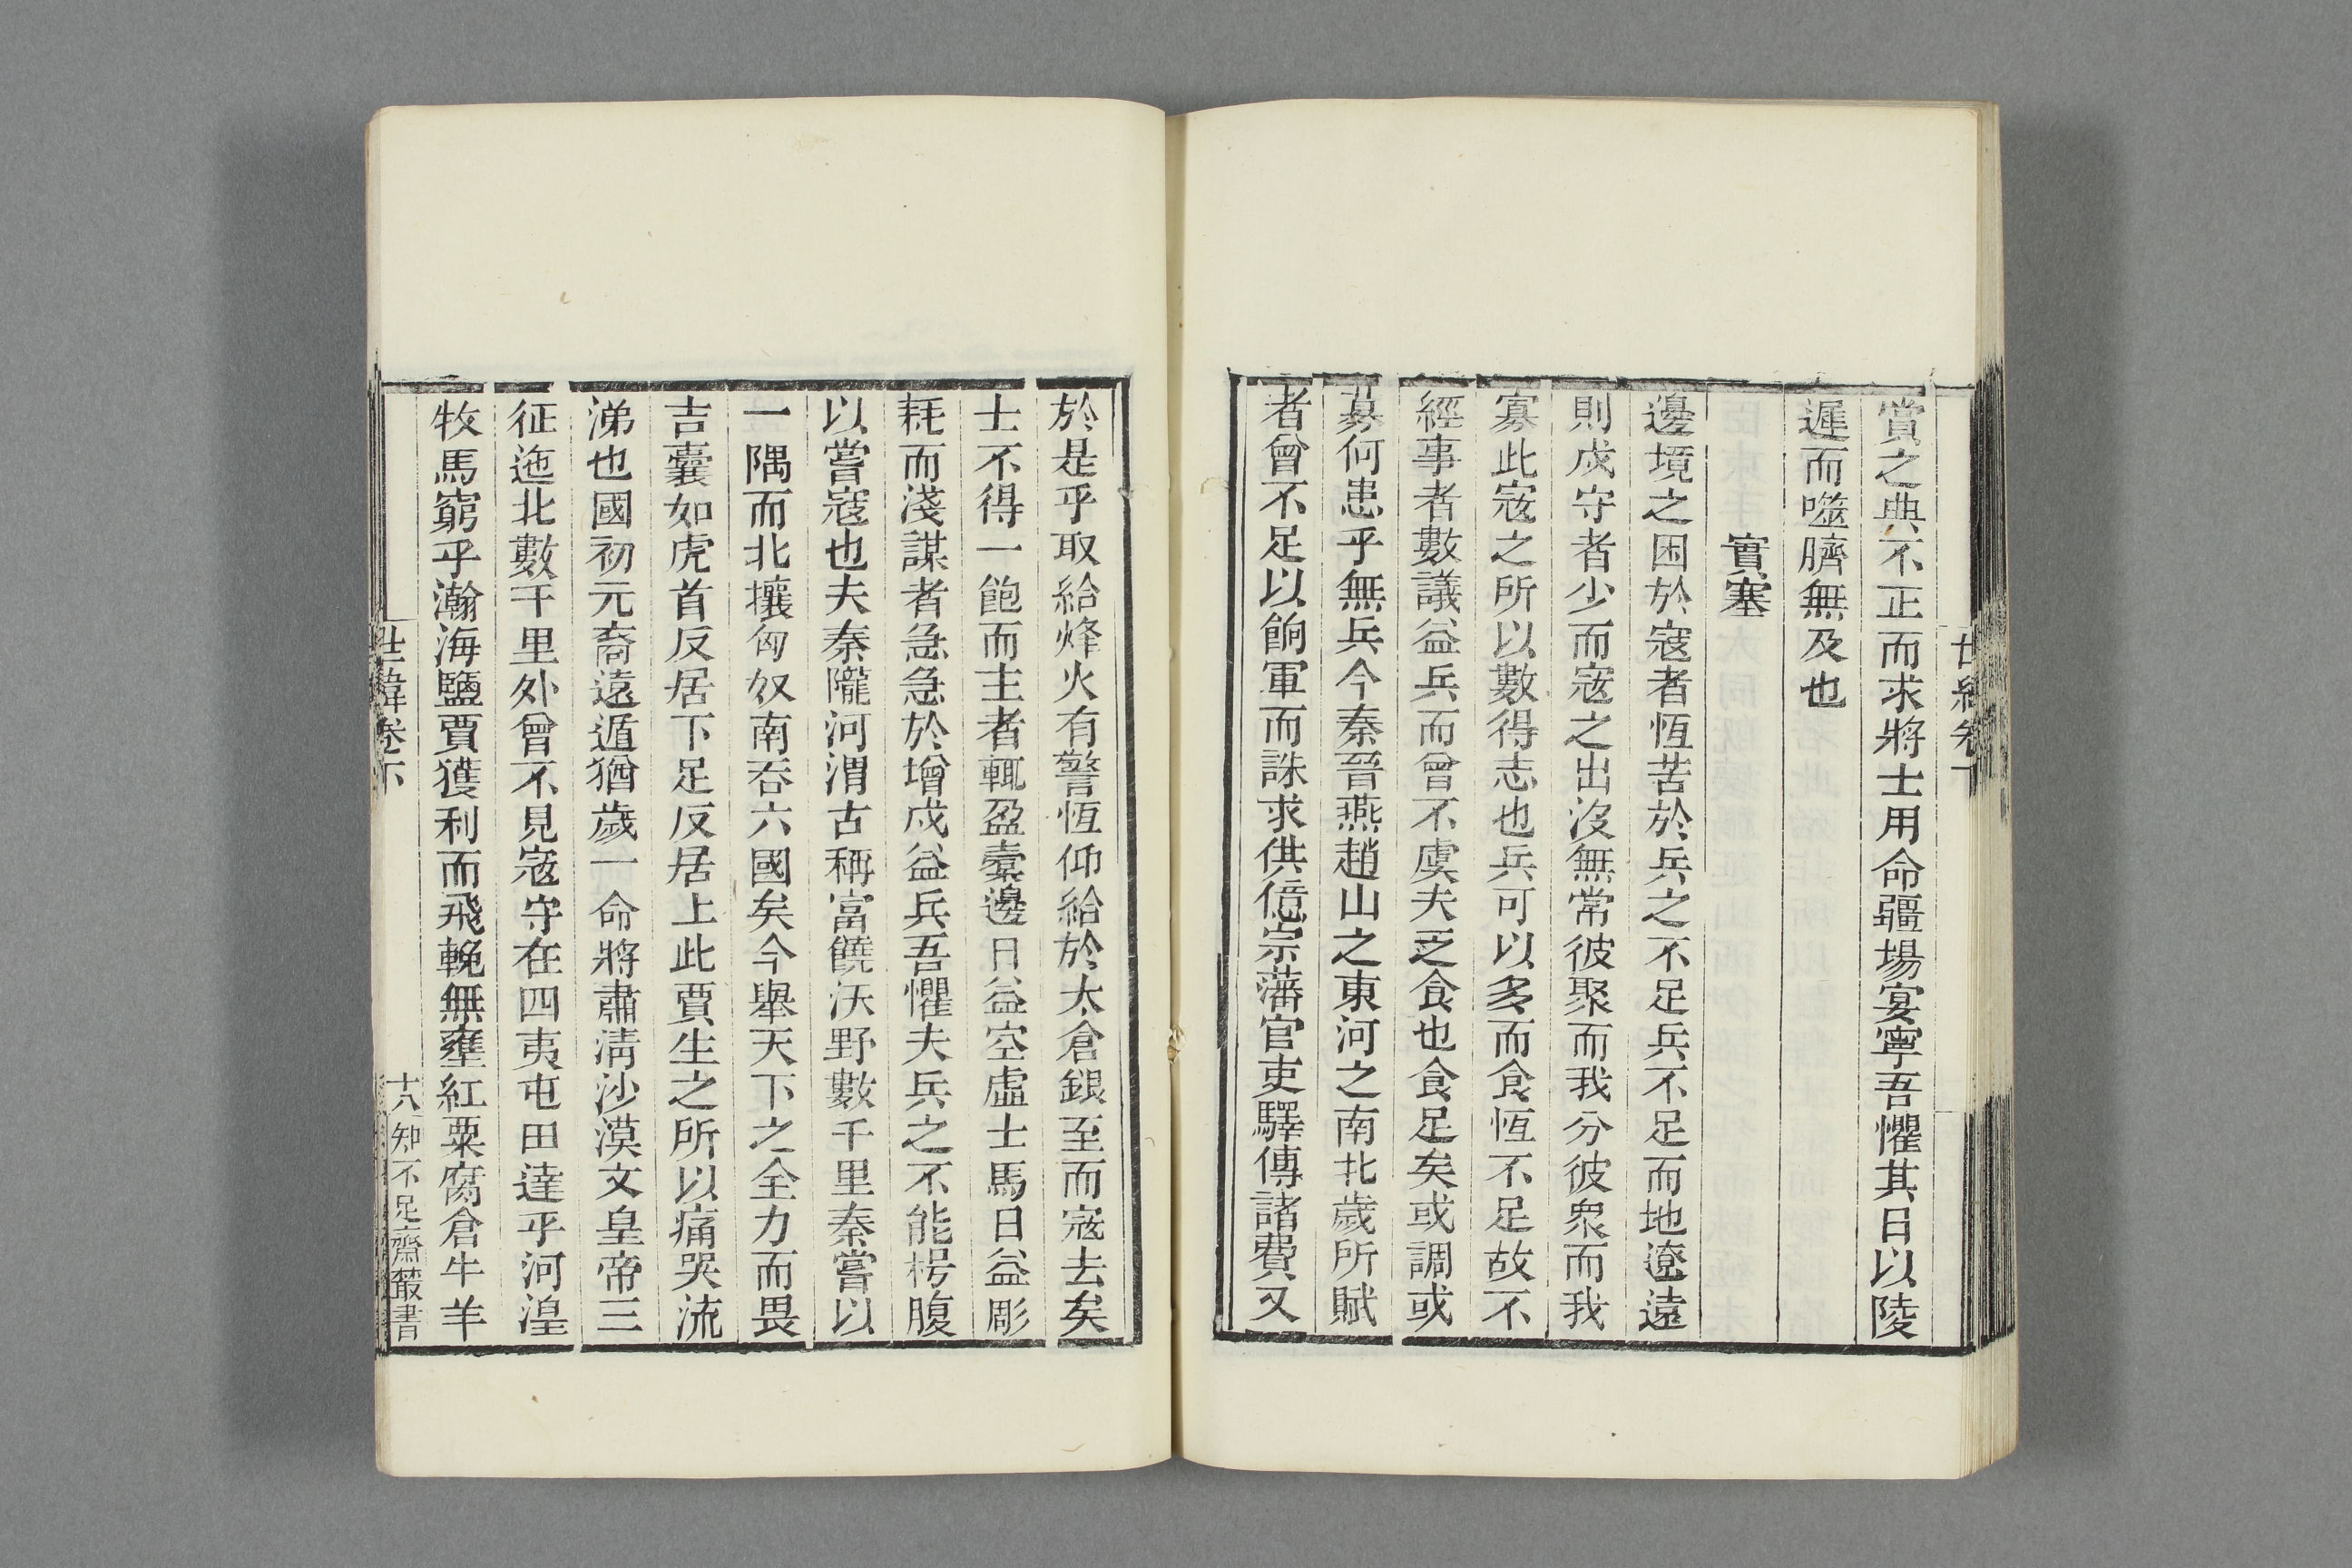 賞之典不正而求將士用命疆場宴寧吾懼其日以陵
遲而噬臍無及也
實塞
邊境之困於寇者恆苦於兵之不足兵不足而地遼遠
則戍守者少而寇之出沒無常彼聚而我分彼衆而我
寡此寇之所以數得志也兵可以多而食恆不足故不
經事者數議益兵而曾不虞夫乏食也食足矣或調或
募何患乎無兵今秦晉燕趙山之東河之南北歲所賦
者曾不足以餉軍而誅求供億宗藩官吏驛傳諸費又
於是乎取給烽火有警恆仰給於太倉銀至而寇去矣
士不得一飽而主者輒盈橐邊日益空虛士馬日益彫
耗而淺謀者急急於增戍益兵吾懼夫兵之不能枵腹
以嘗寇也夫秦隴河渭古稱富饒沃野數千里秦嘗以
一隅而北攘匈奴南吞六國矣今舉天下之全力而畏
吉囊如虎首反居下足反居上此賈生之所以痛哭流
涕也國初元裔遠遁猶歲一命將肅淸沙漠文皇帝三
征迤北數千里外曾不見寇守在四夷屯田達乎河湟
牧馬窮乎瀚海鹽賈獲利而飛輓無壅紅粟腐倉牛羊
世緯卷下
十八
知不足齋叢書